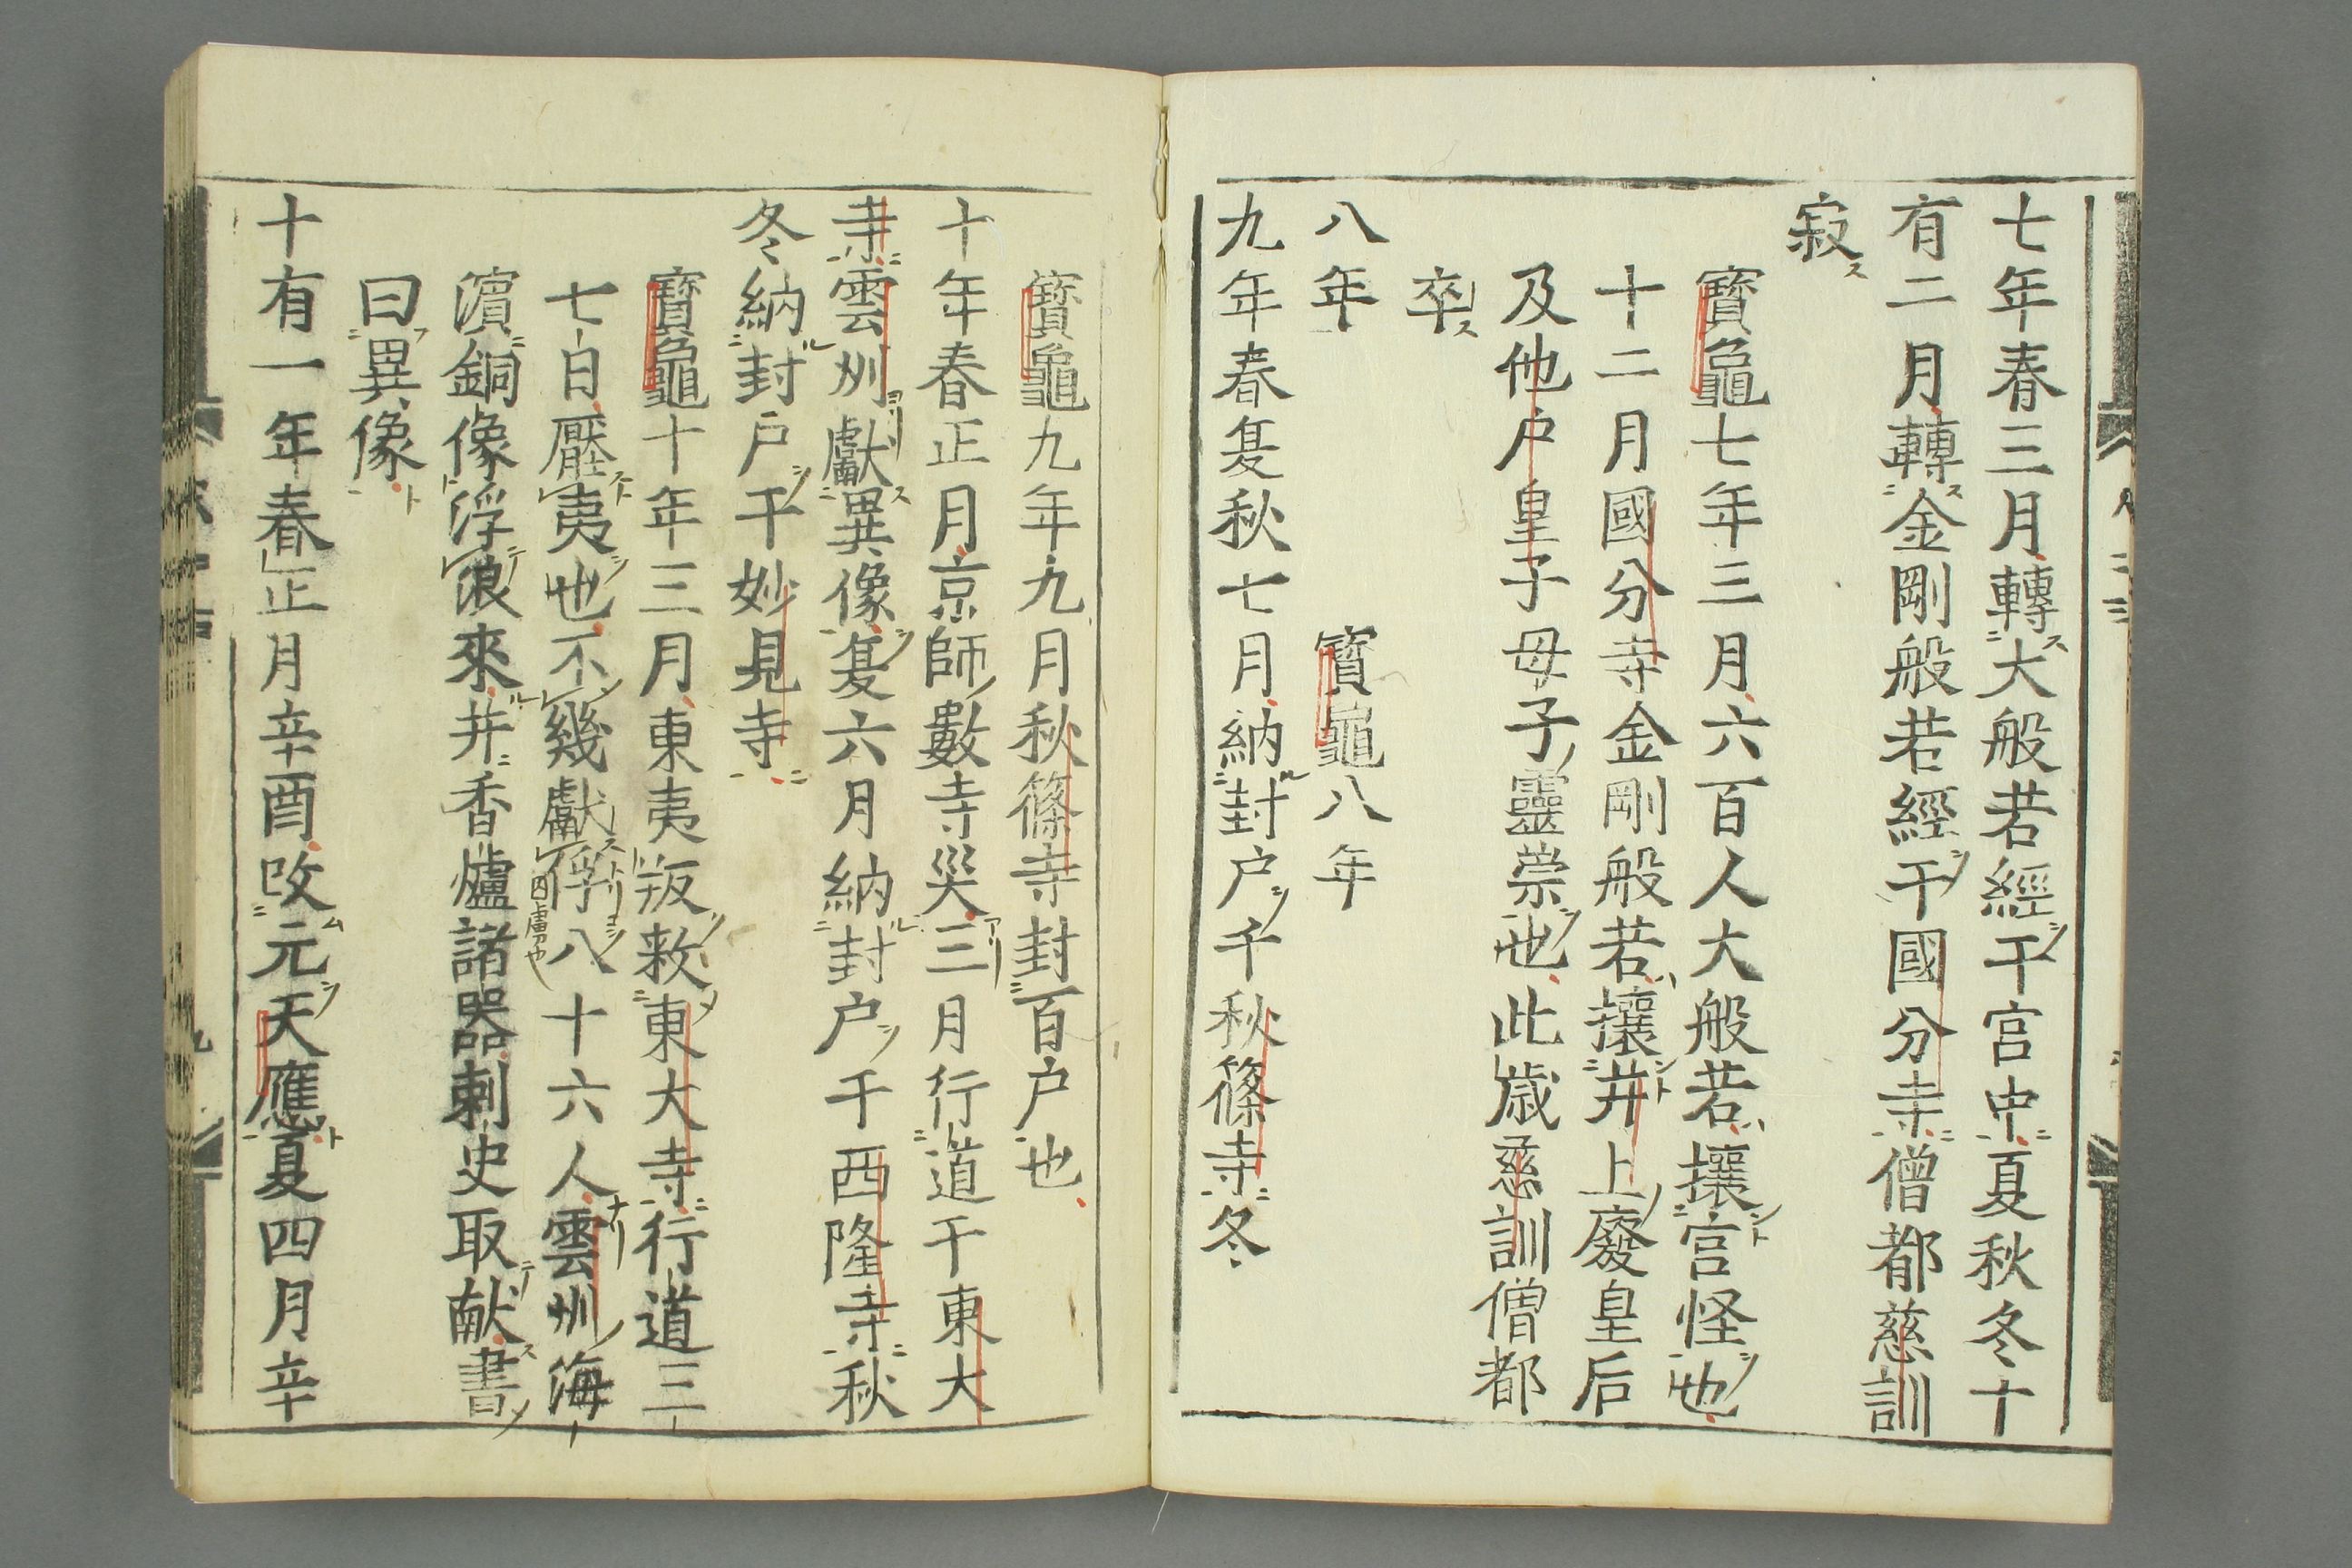 七年春三月轉大般若經干宮中夏秋冬十
有二月轉金剛般若經干國分寺僧都慈訓
寂
寳龜七年三月六百人大般若攘宮怪也
十二月國分寺金剛般若攘井上廢皇后
及他戸皇子母子靈崇也此歳慈訓僧都
卒
八年　寳龜八年
九年春夏秋七月納封户千秋篠寺冬
寳龜九年九月秋篠寺封百户也
十年春正月京師數寺災三月行道干東大
寺雲州獻異像夏六月納封户千西隆寺秋
冬納封户千妙見寺
寳龜十年三月東夷叛敕東大寺行道三
七日壓夷也不幾獻俘八十六人雲州海
濵銅像浮浪來井香爐諸器刺史取献書
曰異像
十有一年春正月辛酉改元天應夏四月辛